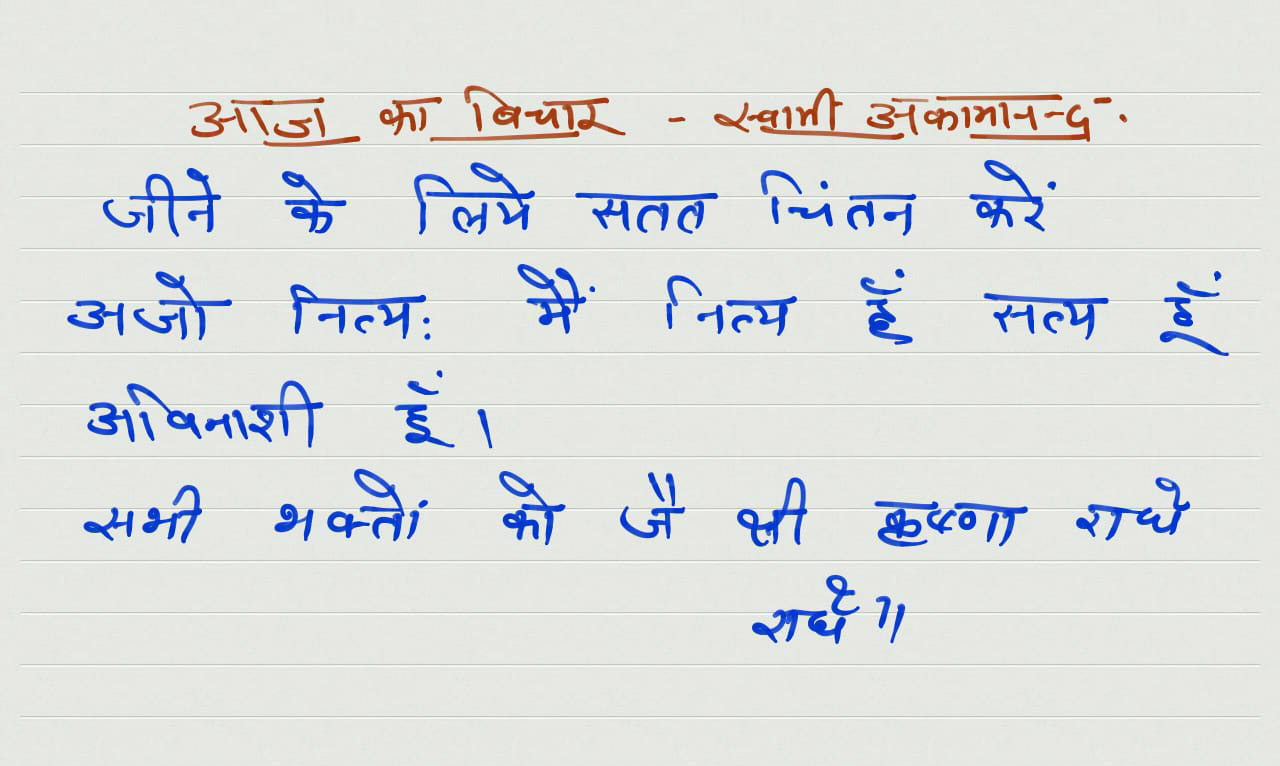 आज का विचार - स्वामी अकामानन्द.
जीने के लिये सतत चिंतन करें
अजो नित्य: मैं नित्य हूँ सत्य हूँ
अविनाशी हूँ।
सभी भक्तों को जै श्री कृष्णा राधे
राधे॥